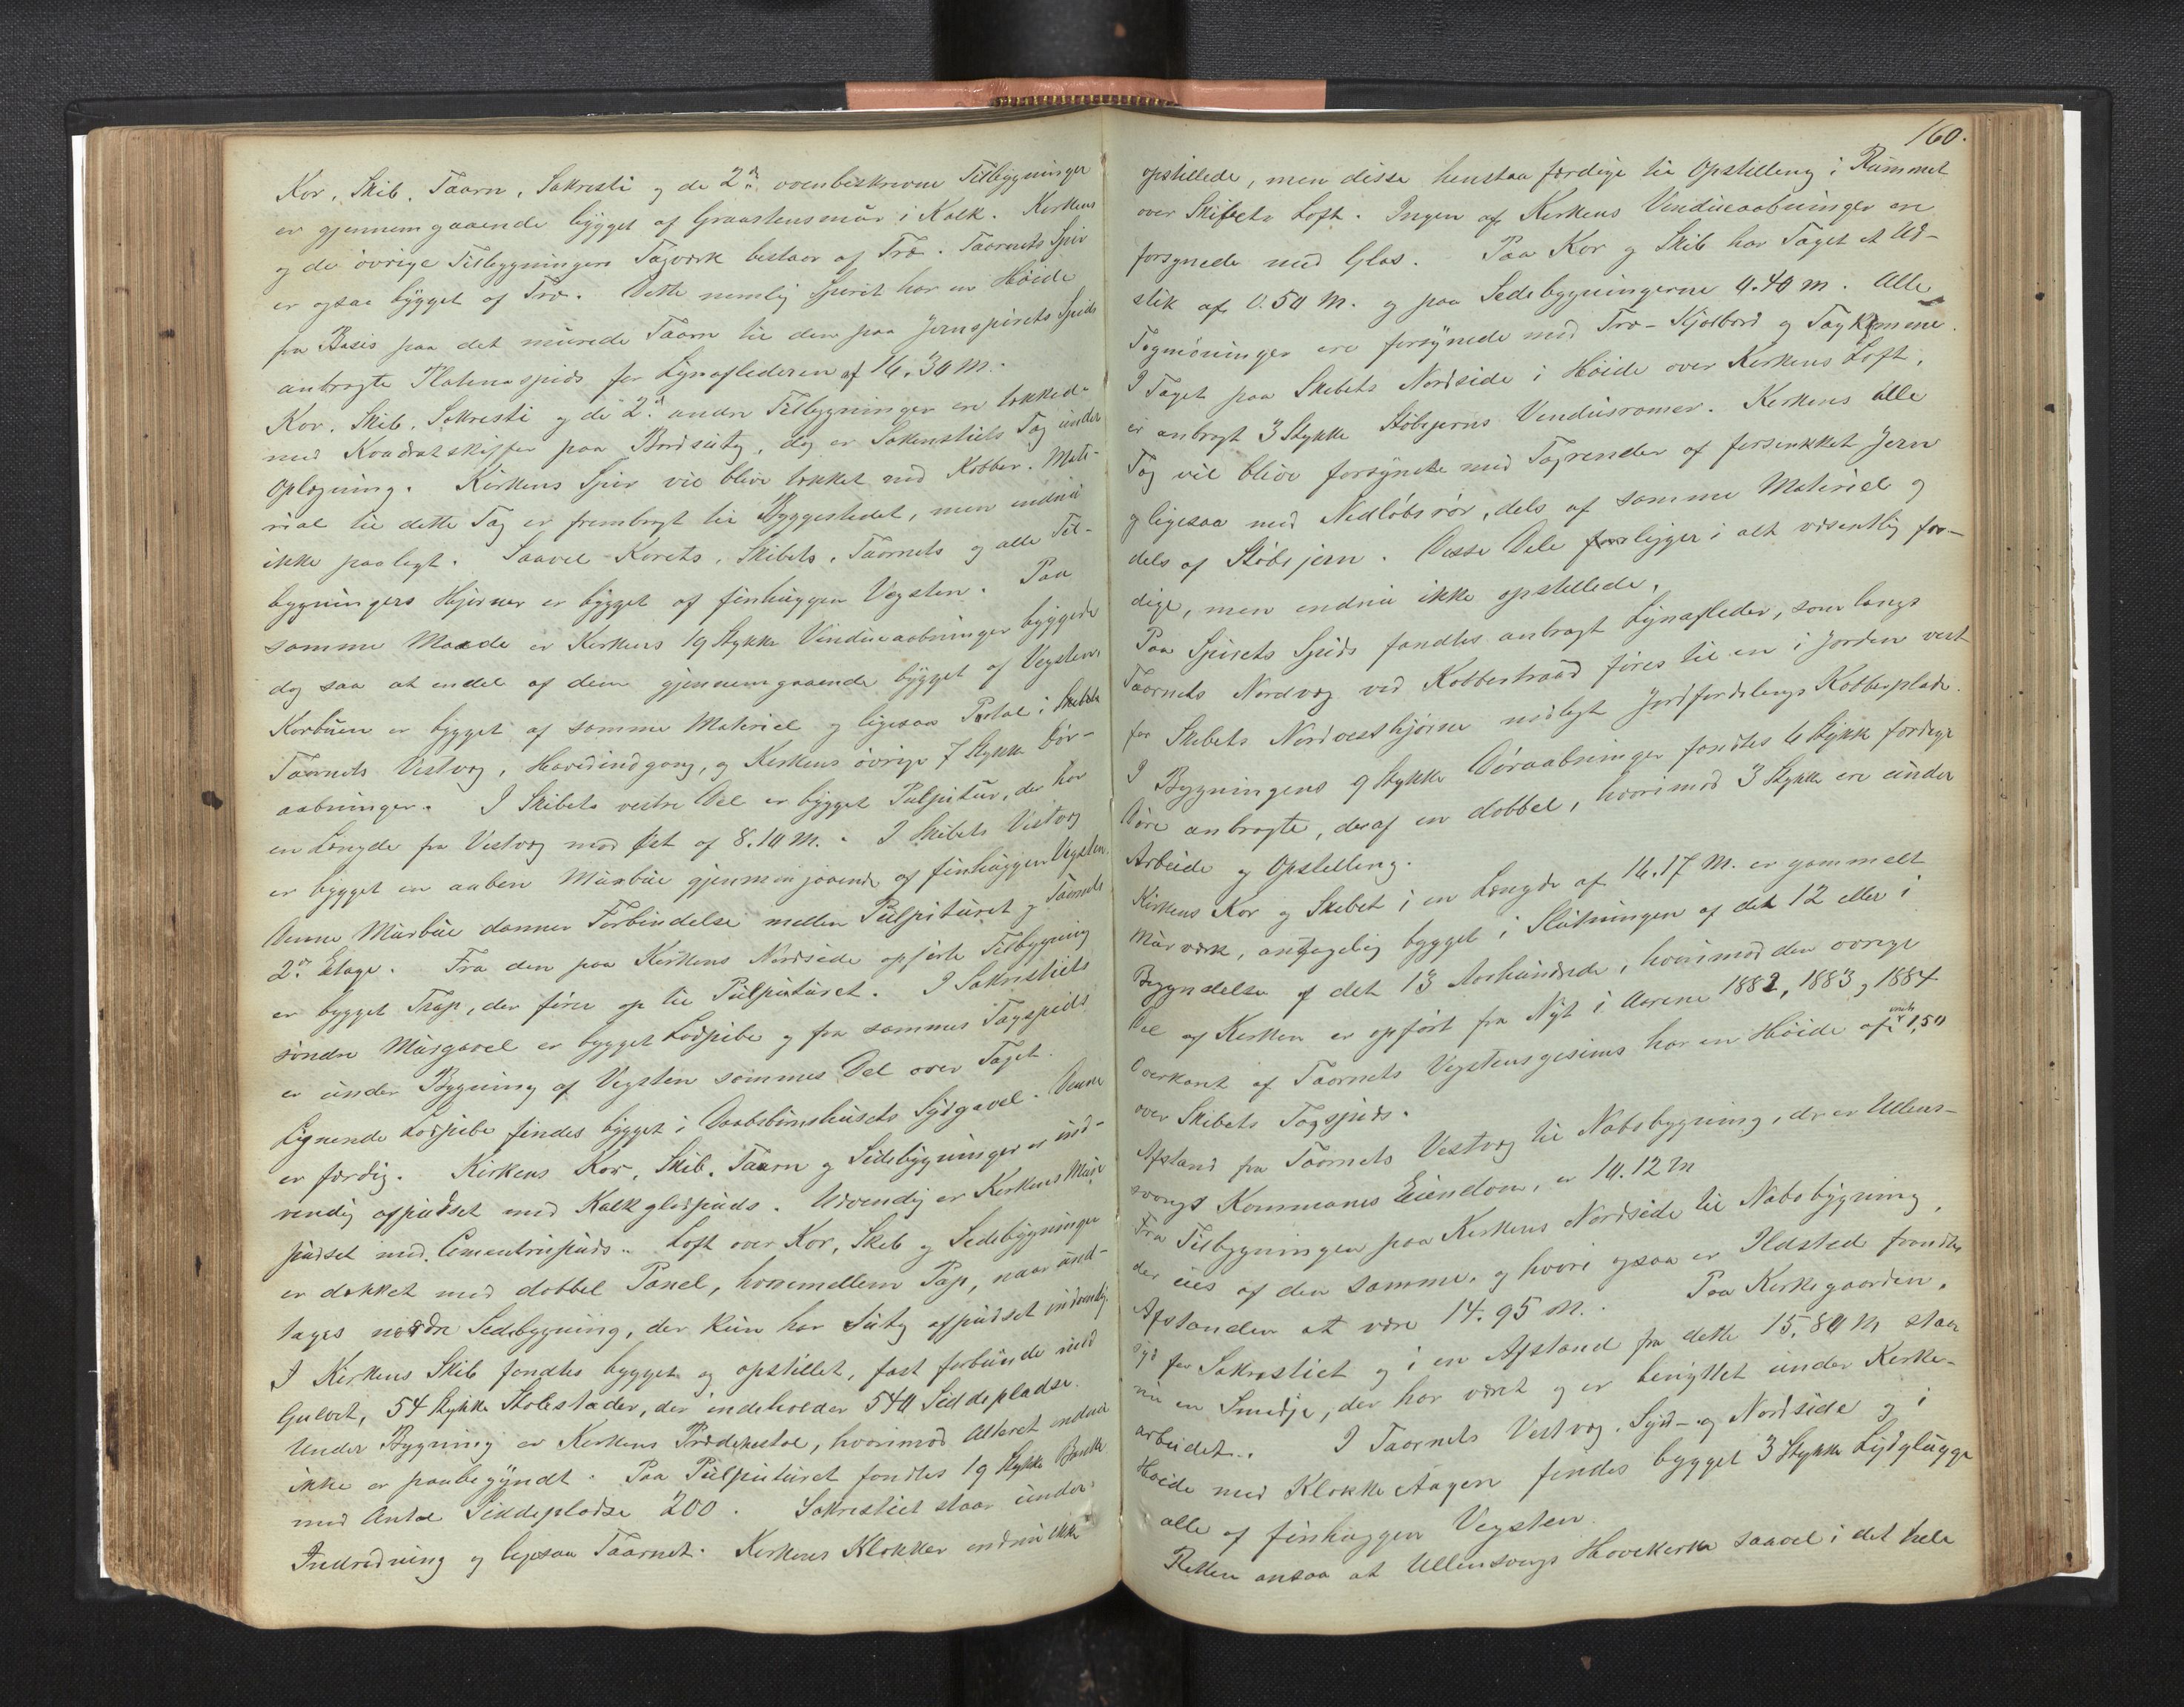 Kor, Skib, Taarn, Sakresti og de 2de ovenbeskrevne Tilbygninger
er gjennemgaaende bygget af Graastensmur i Kalk. Kirkens
og de övrige Tilbygningers Tagværk bestaar af Træ. Taarnets Spir
er ogsaa bygget af Træ. Dette nemlig Spiret har en Höide
fra Basis paa det murede Taarn til den paa Jernspirets Spids
anbragte Platinaspids for Lynaflederen af 16.30 M.
Kor, Skib, Sakresti og de 2de andre Tilbygninger ere tækkede
med Kvadratskiffer paa Bordsutag, dog er Sakristiets Tag under
Oplægning. Kirkens Spir vil blive tækket med Kobber. Mate-
rial til dette Tag er frembragt til Byggestedet, men endnu
ikke paalagt. Saavel Korets, Skibets, Taarnets og alle Til-
bygningers Hjörner er bygget af finhuggen Vegsten. Paa
samme Maade er Kirkens 19 Stykke Vinduesaabninger byggede
dog saa at endel af dem gjennemgaaende bygget af Vegsten.
Korbuen er bygget af samme Materiel og ligesaa Portal i Skibets
Taarnets Vestvæg, Hovedindgang, og Kirkens övrige 7 Stykke Dör-
aabninger. I Skibets vestre Del er bygget Pulpitur, der har
en Længde fra Vestvæg mod Öst af 8.10 M. I Skibets Vestvæg
er bygget en aaben Murbue gjennemgaaende af finhuggen Vegsten.
Denne Murbue danner Forbindelse mellem Pulpituret og Taarnets
2den Etage. Fra den paa Kirkens Nordside opförte Tilbygning
er bygget Trap, der förer op til Pulpituret. I Sakristiets
söndre Murgavel er bygget Lodpibe og fra sammes Tagspids
er under Bygning af Vegsten sammes Del over Taget.
Lignende Lodpibe findes bygget i Daabsbarnshusets Sydgavel. Denne
er færdig. Kirkens Kor, Skib, Taarn og Sidebygninger er ind-
vendig afpudset med Kalkgladpuds. Udvendig er Kirkens Mure
pudset med Cementrupuds. Loft over Kor, Skib og Sidebygninger
er dækket med dobbel Panel, hvoremellem Pap, naar und-
tages nordre Sidebygning, der kun har Sutag afpudset indvendig.
I Kirkens Skib fandtes bygget og opstillet, fast forbunde med
Gulvet, 54 Stykke Stolestader, der indeholder 540 Siddepladse.
Under Bygning er Kirkens Prædikestol, hvorimod Alteret endnu
ikke er paabegyndt. Paa Pulpituret fandtes 19 Stykke Bænke
med Antal Siddepladse 200. Sakristiet staar under
Indredning og ligesaa Taarnet. Kirkens Klokker endnu ikke
160.
opstillede, men disse henstaa færdige til Opstilling i Rummet
over Skibets Loft. Ingen af Kirkens Vinduesaabninger ere
forsynede med Glas. Paa Kor og Skib har Taget et Ud-
stik af 0.50 M. og paa Sidebygningerne 0.40 M. Alle
Tagmöninger ere forsynede med Træ-Kjölbord og Tagkamme.
I Taget paa Skibets Nordside i Höide over Kirkens Loft,
er anbragt 3 Stykke Stöbejerns Vindusramer. Kirkens alle
Tag vil blive forsynede med Tagrender af forsinkket Jern
og ligesaa med Nedlöbsrör, dels af samme Materiel og
dels af Stöbejern. Disse Dele forligger i alt væsentlig fær-
dige, men endnu ikke opstillede.
Paa Spirets Spids fandtes anbragt Lynafleder, som langs
Taarnets Nordvæg ved Kobbertraad föres til en i Jorden vest
for Skibets Nordvesthjörne nedlagt Jordfordelings Kobberplade.
I Bygningens 9 Stykke Döraabninger fandtes 6 Stykke færdige
Döre anbragte, deraf en dobbel, hvorimod 3 Stykke ere under
Arbeide og Opstilling.
Kirkens Kor og Skibet i en Længde af 16.17 M. er gammelt
Murværk, antagelig bygget i Slutningen af det 12 eller i
Begyndelse af det 13 Aarhundrede, hvorimod den övrige
Del af Kirken er opfört fra Nyt i Aarene 1882, 1883 og 1884
Overkant af Taarnets Vegstensgesims har en Höide af 1,50
over Skibets Tagspids.
Afstand fra Taarnets Vestvæg til Nabobygning, der er Ullens-
vangs Kommunes Eiendom, er 10.12 M
Fra Tilbygningen paa Kirkens Nordside til Nabobygning,
der eies af den samme, og hvori ogsaa er Ildsted fandtes
Afstanden at være 14.95 M. Paa Kirkegaarden,
syd for Sakristiet og i en Afstand fra dette 15,80 M staar
nu en Smedje, der har været og er benyttet under Kirke-
arbeidet. I Taarnets Vestvæg, Syd- og Nordside og i
Höide med Klokke Aagen findes bygget 3 Stykke Lydglugge
alle af finhuggen Vegsten.
Retten ansaa at Ullensvangs Hovedkirke saavel i det hele